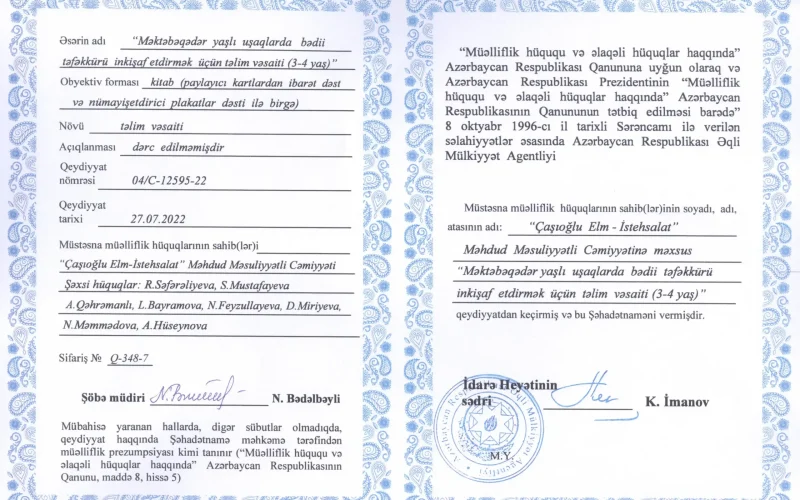 Əsərin adı "Məktəbəqədər yaşlı uşaqlarda bədii
təfəkkürü inkişaf etdirmək üçün təlim vəsaiti (3-4 yaş)"
Obyektiv forması kitab (paylayıcı kartlardan ibarət dəst
və nümayişetdirici plakatlar dəsti ilə birgə)
Növü təlim vəsaiti
Açıqlanması dərc edilməmişdir
Qeydiyyat
nömrəsi 04/C-12595-22
Qeydiyyat
tarixi 27.07.2022
Müstəsna müəlliflik hüquqlarının sahib(lər)i
"Çaşıoğlu Elm-İstehsalat" Məhdud Məsuliyyətli Cəmiyyəti
Şəxsi hüquqlar: R.Səfərəliyeva, S.Mustafayeva
A.Qəhrəmanlı, L.Bayramova, N.Feyzullayeva, D.Miriyeva,
N.Məmmədova, A.Hüseynova
Sifariş № Q-348-7
Şöbə müdiri N. Bədəlbəyli
Mübahisə yaranan hallarda, digər sübutlar olmadıqda,
qeydiyyat haqqında Şəhadətnamə məhkəmə tərəfindən
müəlliflik prezumpsiyası kimi tanınır ("Müəlliflik hüququ və
əlaqəli hüquqlar haqqında" Azərbaycan Respublikasının
Qanunu, maddə 8, hissə 5)
"Müəlliflik hüququ və əlaqəli hüquqlar haqqında"
Azərbaycan Respublikası Qanununa uyğun olaraq və
Azərbaycan Respublikası Prezidentinin "Müəlliflik
hüququ və əlaqəli hüquqlar haqqında" Azərbaycan
Respublikasının Qanununun tətbiq edilməsi barədə"
8 oktyabr 1996-cı il tarixli Sərəncamı ilə verilən
səlahiyyətlər əsasında Azərbaycan Respublikası Əqli
Mülkiyyət Agentliyi
Müstəsna müəlliflik hüquqlarının sahib(lər)inin soyadı, adı,
atasının adı: "Çaşıoğlu Elm - İstehsalat"
Məhdud Məsuliyyətli Cəmiyyətinə məxsus
"Məktəbəqədər yaşlı uşaqlarda bədii təfəkkürü
inkişaf etdirmək üçün təlim vəsaiti (3-4 yaş)"
qeydiyyatdan keçirmiş və bu Şəhadətnaməni vermişdir.
İdarə Heyətinin
sədri K. İmanov
M.Y.